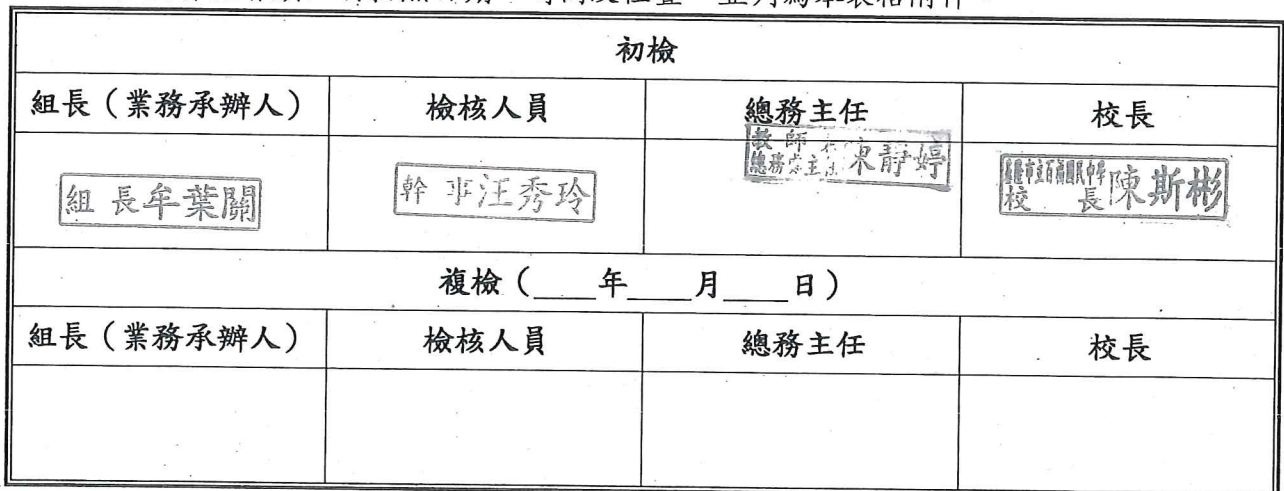 初檢
組長（業務承辦人） 檢核人員 總務主任 校長
組長牟葉關 幹事汪秀玲 教師兼總務處主任 陳靜婷 校長 陳斯彬
複檢（____年____月____日）
組長（業務承辦人） 檢核人員 總務主任 校長